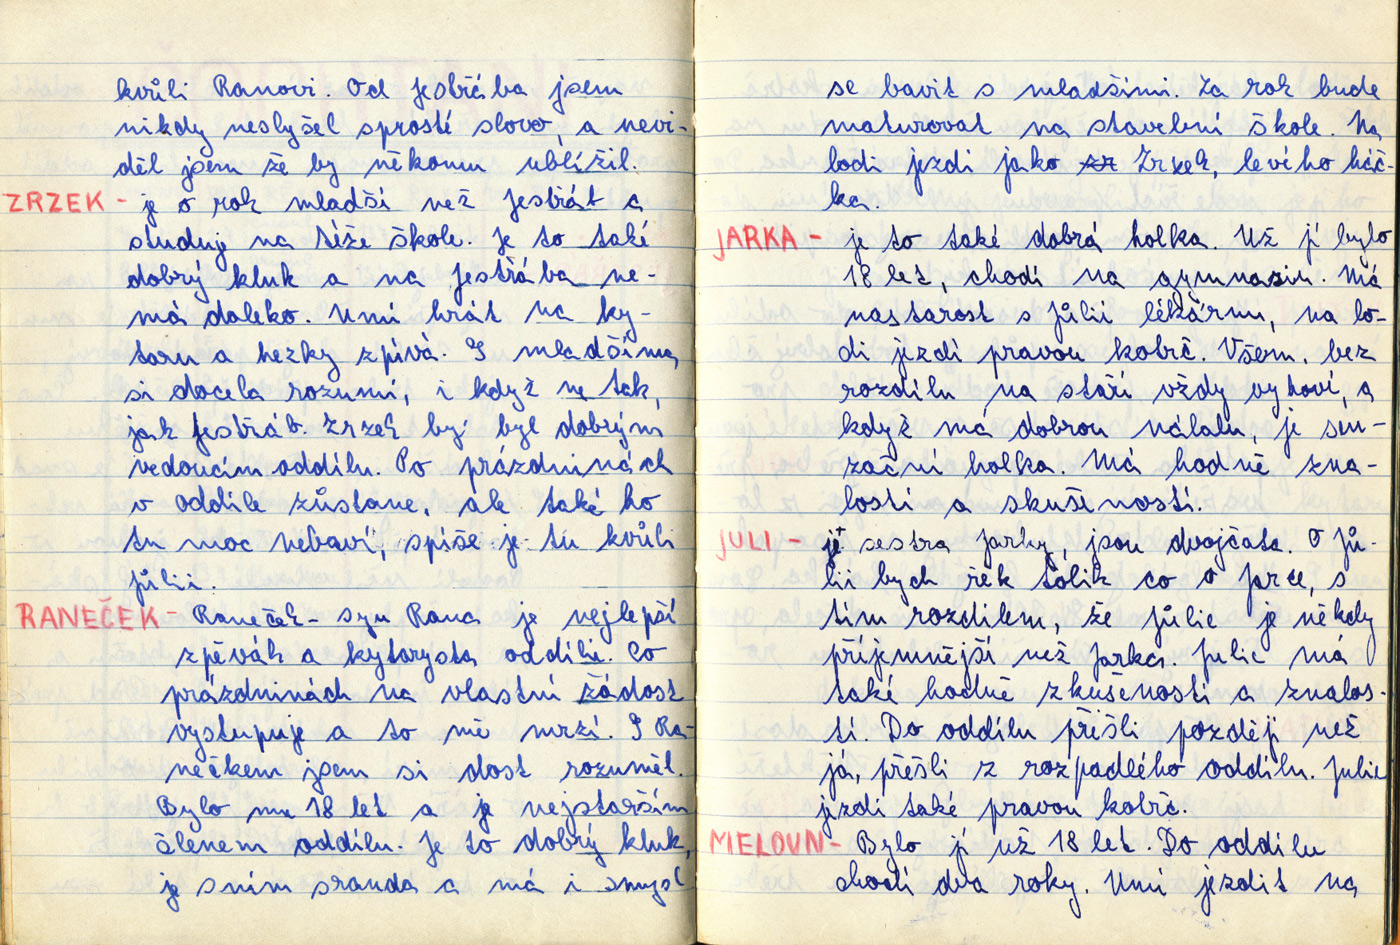 kvůli Ranovi. Od Jestřába jsem
nikdy neslyšel sprosté slovo a nevi-
děl jsem že by někomu ublížil.
ZRZEK - je o rok mladší než Jestřáb a
studuje na téže škole. Je to také
dobrý kluk a na Jestřába ne-
má daleko. Umí hrát na ky-
taru a hezky zpívá. S mladšíma
si docela rozumí, i když ne tak,
jak Jestřáb. Zrzek by byl dobrým
vedoucím oddílu. Po prázdninách
v oddíle zůstane, ale také ho
to moc nebaví, spíše je tu kvůli
Jůlii.
RANEČEK - Raneček - syn Rana je nejlepší
zpěvák a kytarysta oddílu. Po
prázdninách na vlastní žádost
vystupuje a to mě mrzí. S Ra-
nečkem jsem si dost rozuměl.
Bylo mu 18 let a je nejstarším
členem oddílu. Je to dobrý kluk,
je s ním sranda a má i smysl
se bavit s mladšími. Za rok bude
maturovat na stavební škole. Na
lodi jezdí jako Zrzek, levého háč-
ka.
JARKA - je to také dobrá holka. Už jí bylo
18 let, chodí na gymnasiu. Má
nastarost s Jůlií lékárnu, na lo-
di jezdí pravou kobrč. Všem, bez
rozdílu na stáří vždy vyhoví, a
když má dobrou náladu, je sen-
začni holka. Má hodně zna-
lostí a skušeností.
JULI - je sestra Jarky, jsou dvojčata. O Jů-
lii bych řek tolik co o Jarce, s
tím rozdílem, že Jůlie je někdy
příjemnější než Jarka. Julie má
také hodně zkušeností a znalos-
tí. Do oddílu přešli později než
já, přešli z rozpadlého oddílu. Julie
jezdí také pravou kobrč.
MELOUN - Bylo jí už 18 let. Do oddílu
chodí dva roky. Umí jezdit na